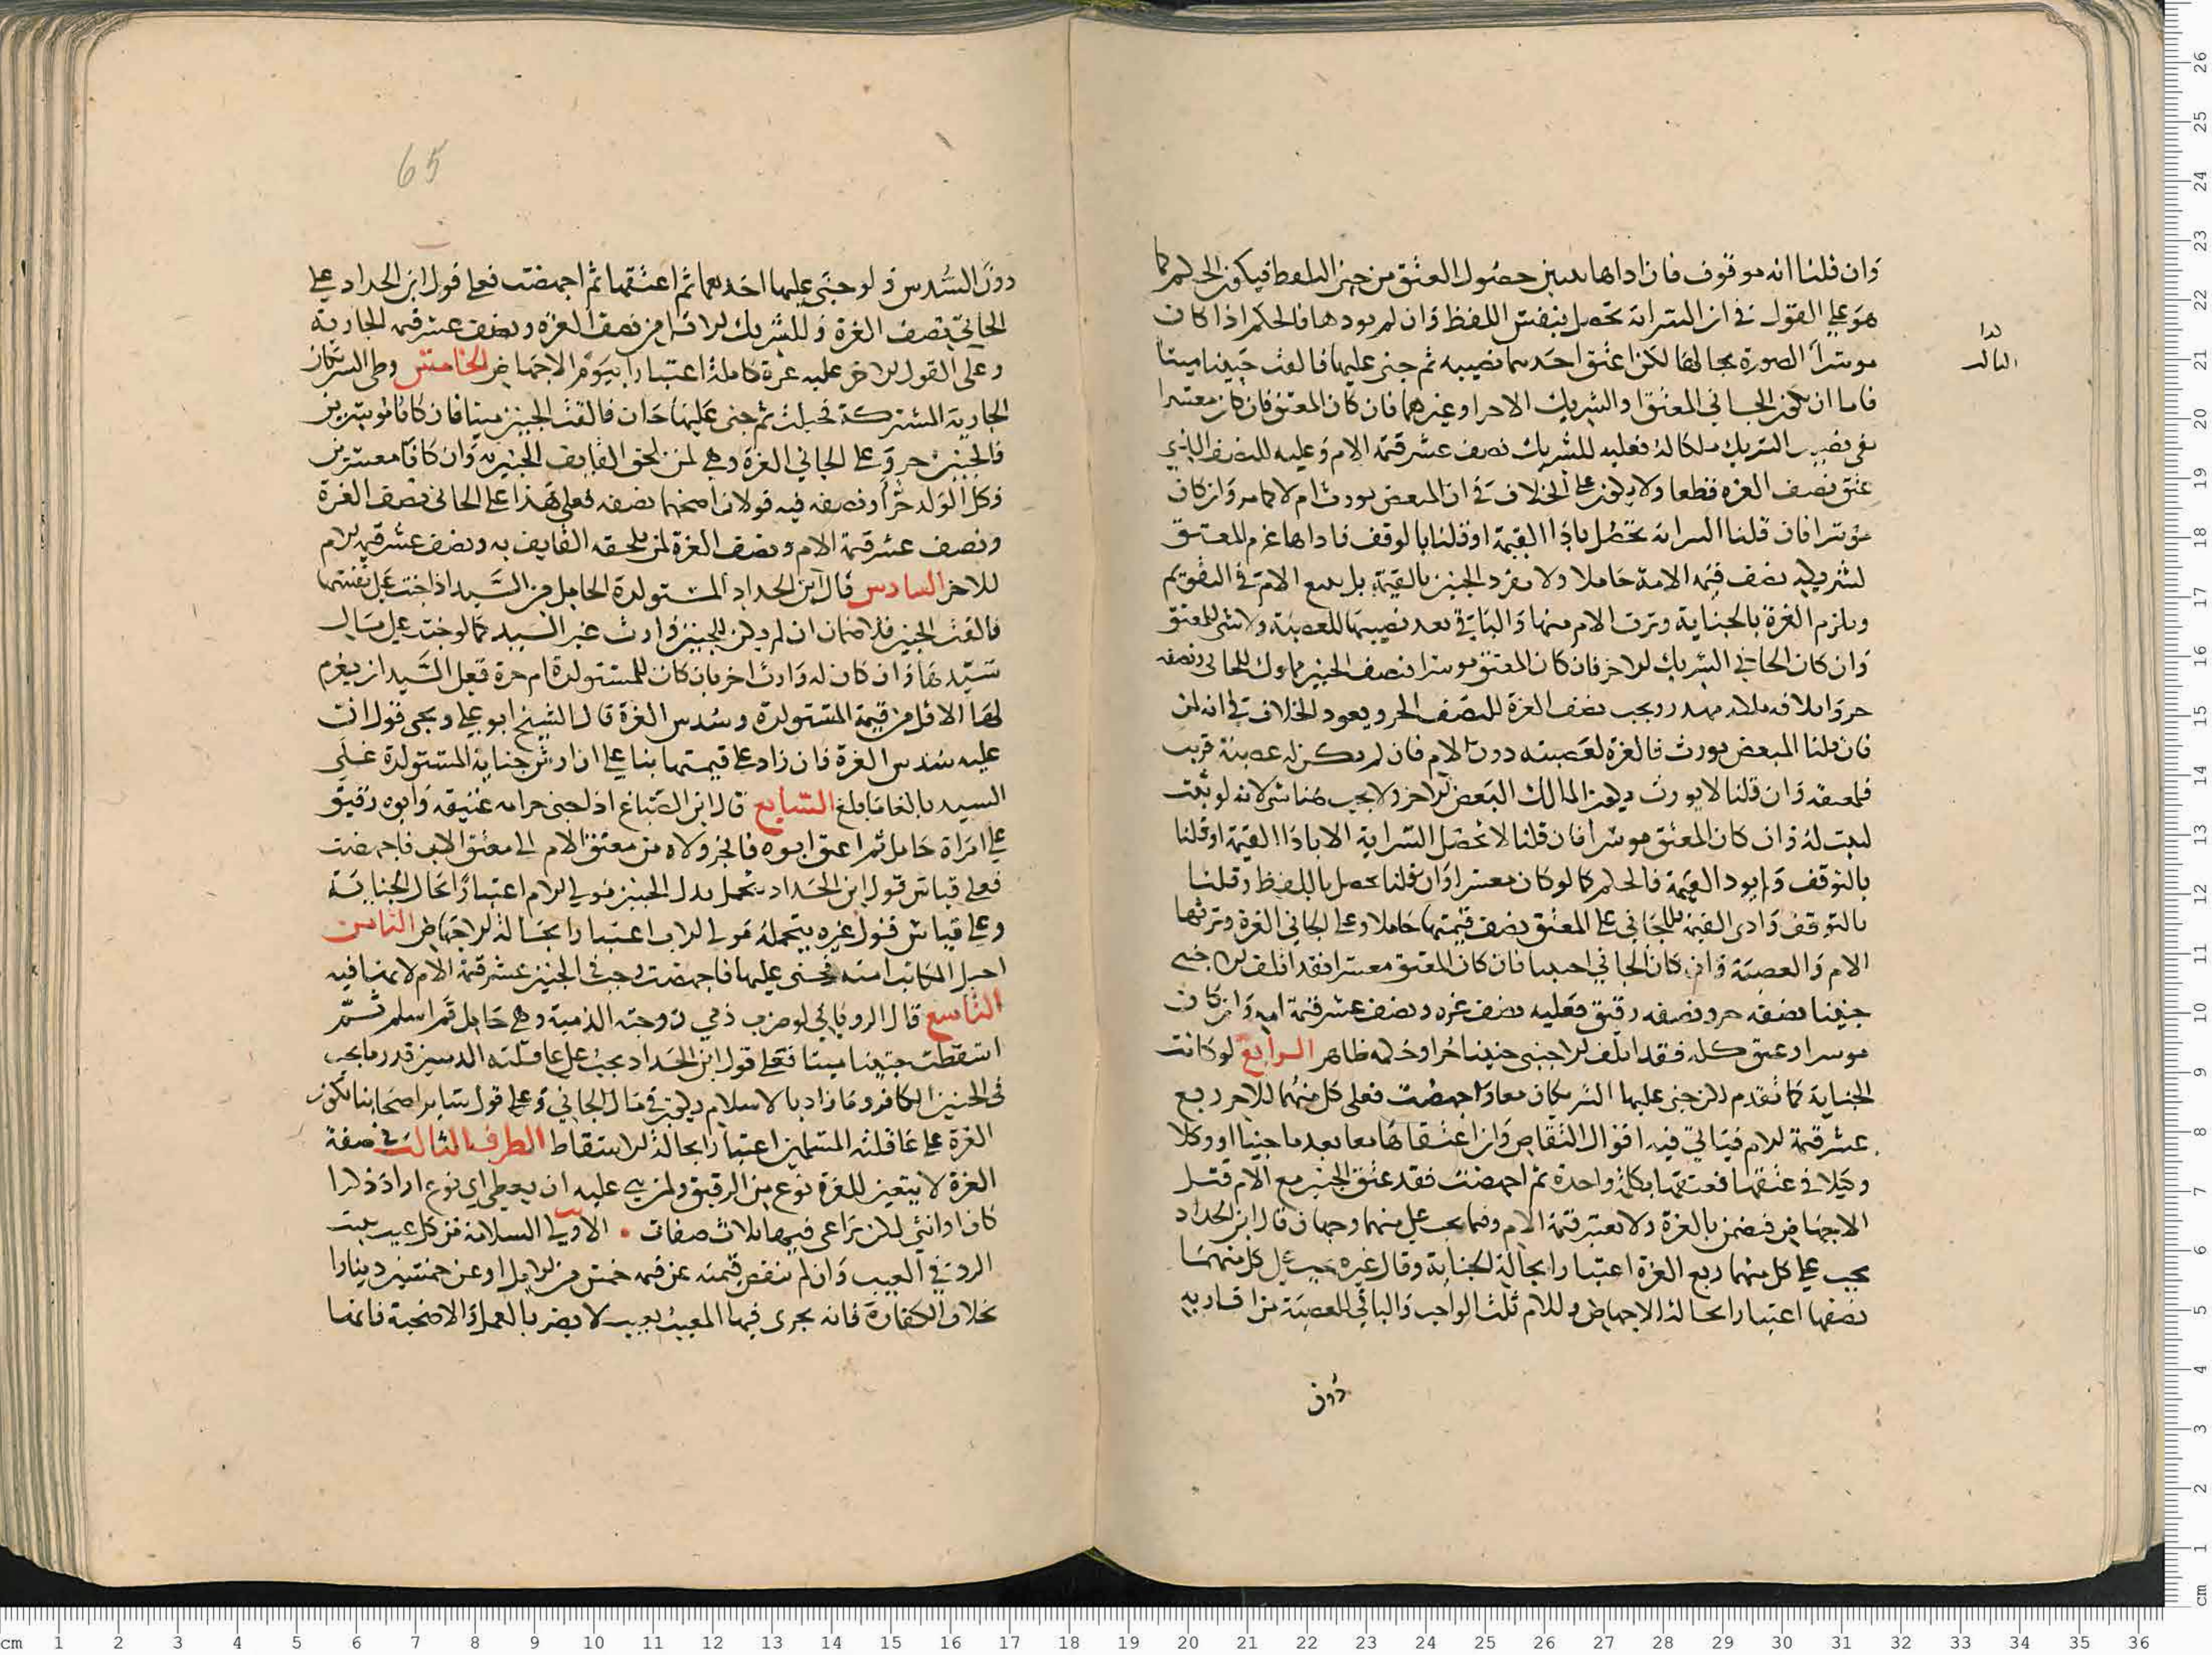 وان قلنا انه موقوف فان اداها تبين حصول العتق من حين اللفظ فيكون الحكم كما
هو على القول في ان السراية تحصل بنفس اللفظ وان لم يودها فالحكم اذا كان
موسرا الصورة بحالها لكن اعتق احدهما نصيبه ثم جنى عليها فالقت جنينا ميتا
فاما ان يكون الجاني المعتق او الشريك الاخر او غيرهما فان كان المعتق فان كان معسرا
بقي نصيب الشريك ملكا له فعليه للشريك نصف عشر قيمة الام وعليه للنصف الذي
عتق نصف الغرة قطعا ولا يكون على الخلاف في ان المبعض يورث ام لا كما مر وان كان
موسرا فان قلنا السراية تحصل باداا القيمة او قلنا بالوقف فاداها غرم المعتق
لشريكه نصف قيمة الامة حاملا ولا تفرد الجنين بالقيمة بل يتبع الام في التقويم
ويلزم الغرة بالجناية وترث الام منها والباقي بعد نصيبها للعصبة ولا شي للمعتق
وان كان الجاني الشريك الاخر فان كان المعتق موسرا فنصف الجنين مملوك للجاني ونصفه
حر واتلافه ملكه مهدر ويجب نصف الغرة للنصف الحر ويعود الخلاف في انه لمن
فان قلنا المبعض يورث فالغرة لعصبته دون الام فان لم يكن له عصبة قريب
فلمعتقه وان قلنا لا يورث ديكون لمالك البعض الاخر ولا يجب هنا شي لانه لو ثبت
لثبت له وان كان المعتق موسرا فان قلنا لا تحصل السراية الا باداا القيمة او قلنا
بالتوقف ولم يود القيمة فالحكم كما لو كان معسرا وان قلنا تحصل باللفظ وقلنا
بالتوقف وادى القيمة فللجاني على المعتق نصف قيمتها حاملا وعلى الجاني الغرة وترثها
الام والعصبة وان كان الجاني اجنبيا فان كان المعتق معسرا فقد اتلف الاجنبي
جنينا نصفه حر ونصفه رقيق فعليه نصف غرة ونصف عشر قيمة امه وان كان
موسرا وعتق كله فقد اتلف الاجنبي جنينا حرا وحكمه ظاهر الرابع لو كانت
الجناية كما تقدم لكن جنى عليها الشريكان معا واجهضت فعلى كل منهما للاخر ربع
عشر قيمة الام فياتي فيه اقوال التقاص وان اعتقاها معا بعد ما جنيا او وكلا
وكيلا في عتقها فعتقها بكلمة واحدة ثم اجهضت فقد عتق الجنين مع الام قبل
الاجهاض فيضمن بالغرة ولا تعتبر قيمة الام وفيما يجب على منهما وجهان قال ابن الحداد
يجب على كل منهما ربع الغرة اعتبارا بحالة الجناية وقال غيره يجب على كل منهما
نصفها اعتبارا بحالة الاجهاض وللام ثلث الواجب والباقي للعصبة من اقاربه
دون
دون السدس ولو جنى عليها احدهما ثم اعتقها ثم اجهضت فعلى قول ابن الحداد على
الجاني نصف الغرة وللشريك الاقل من نصف الغرة ونصف عشر قيمة الجارية
وعلى القول الاخر عليه غرة كاملة اعتبارا بيوم الاجهاض الخامس وطى الشريكان
الجارية المشتركة فحبلت ثم جنى عليها جان فالقت الجنين ميتا فان كانا موسرين
فالجنين حر وعلى الجاني الغرة وهي لمن يلحق القايف الجنين به وان كانا معسرين
فكل الولد حر او نصفه فيه قولان اصحهما نصفه فعلى هذا على الجاني نصف الغرة
ونصف عشر قيمة الام ونصف الغرة لمن يلحقه القايف به ونصف عشر قيمة الام
للاخر السادس قال ابن الحداد المستولدة الحامل من السيد اذا جنت على نفسها
فالقت الجنين فلا ضمان ان لم يكن للجنين وارث غير السيد كما لو جنت على مال
سيدها وان كان له وارث اخر بان كان للمستولدة ام حرة فعلى السيد ان يغرم
لها الاقل من قيمة المستولدة وسدس الغرة قال الشيخ ابو علي ويجي قول ان
عليه سدس الغرة فان زاد على قيمتها بنا على ان ارش جناية المستولدة على
السيد بالغا ما بلغ السابع قال ابن الصباغ اذا جنى حر امه عتيقه وابوه رقيق
على امراة حامل ثم اعتق ابوه فانجر ولاه من معتق الام الى معتق الاب فاجهضت
فعلى قياس قول ابن الحداد يتحمل بدل الجنين مولى الام اعتبارا بحال الجناية
وعلى قياس قول غيره يتحمله مولى الاب اعتبارا بحالة الاجهاض الثامن
احبل المكاتب امته فجنى عليها فاجهضت وجب في الجنين عشر قيمة الام لا يمنا فيه
التاسع قال الروياني لو ضرب ذمي زوجته الذمية وهي حامل ثم اسلم ثم
اسقطت جنينا ميتا فعلى قول ابن الحداد يجب على عاقلته الذميين قدر ما يجب
في الجنين الكافر وما زاد بالاسلام ديكون في مال الجاني وعلى قول ساير اصحابنا تكون
الغرة على عاقلته المسلمين اعتبارا بحالة الاسقاط الطرف الثالث في صفة
الغرة لا يتعين للغرة نوع من الرقيق ولمن هي عليه ان يعطي اي نوع اراد ذكرا
كان او انثى لكن تراعى فيها ثلاث صفات الاولى السلامة من كل عيب يثبت
الرد في البيع وان لم تنقص قيمته عن قيمة خمس من الابل او عن خمسين دينارا
بخلاف الكفارة فانه يجري فيها المعيب بعيب لا يضر بالعمل والاضحية فانما
65